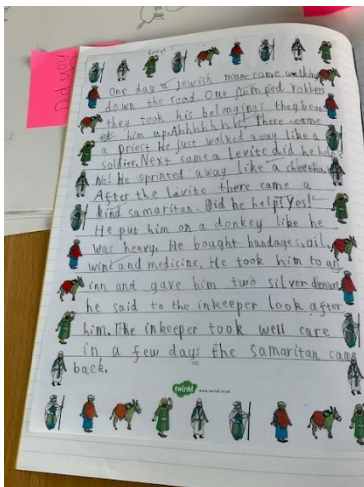 Did you
George
One day a Jewish man came walking
down the road. Out jumped robbers
they took his belongings they beat
him up. Ahhhhhh! There came
a priest. He just walked away like a
soldier. Next came a levite did he help
No! He sprinted away like a cheetha.
After the levite there came a
kind samaritan. Did he help? Yes!
He put him on a donkey like he
was heavy. He bought bandages, oil,
wine and medicine. He took him to an
inn and gave him two silver
he said to the inkeeper look after
him. The inkeeper took well care
in a few days the samaritan came
back.
twinkl www.twinkl.co.uk